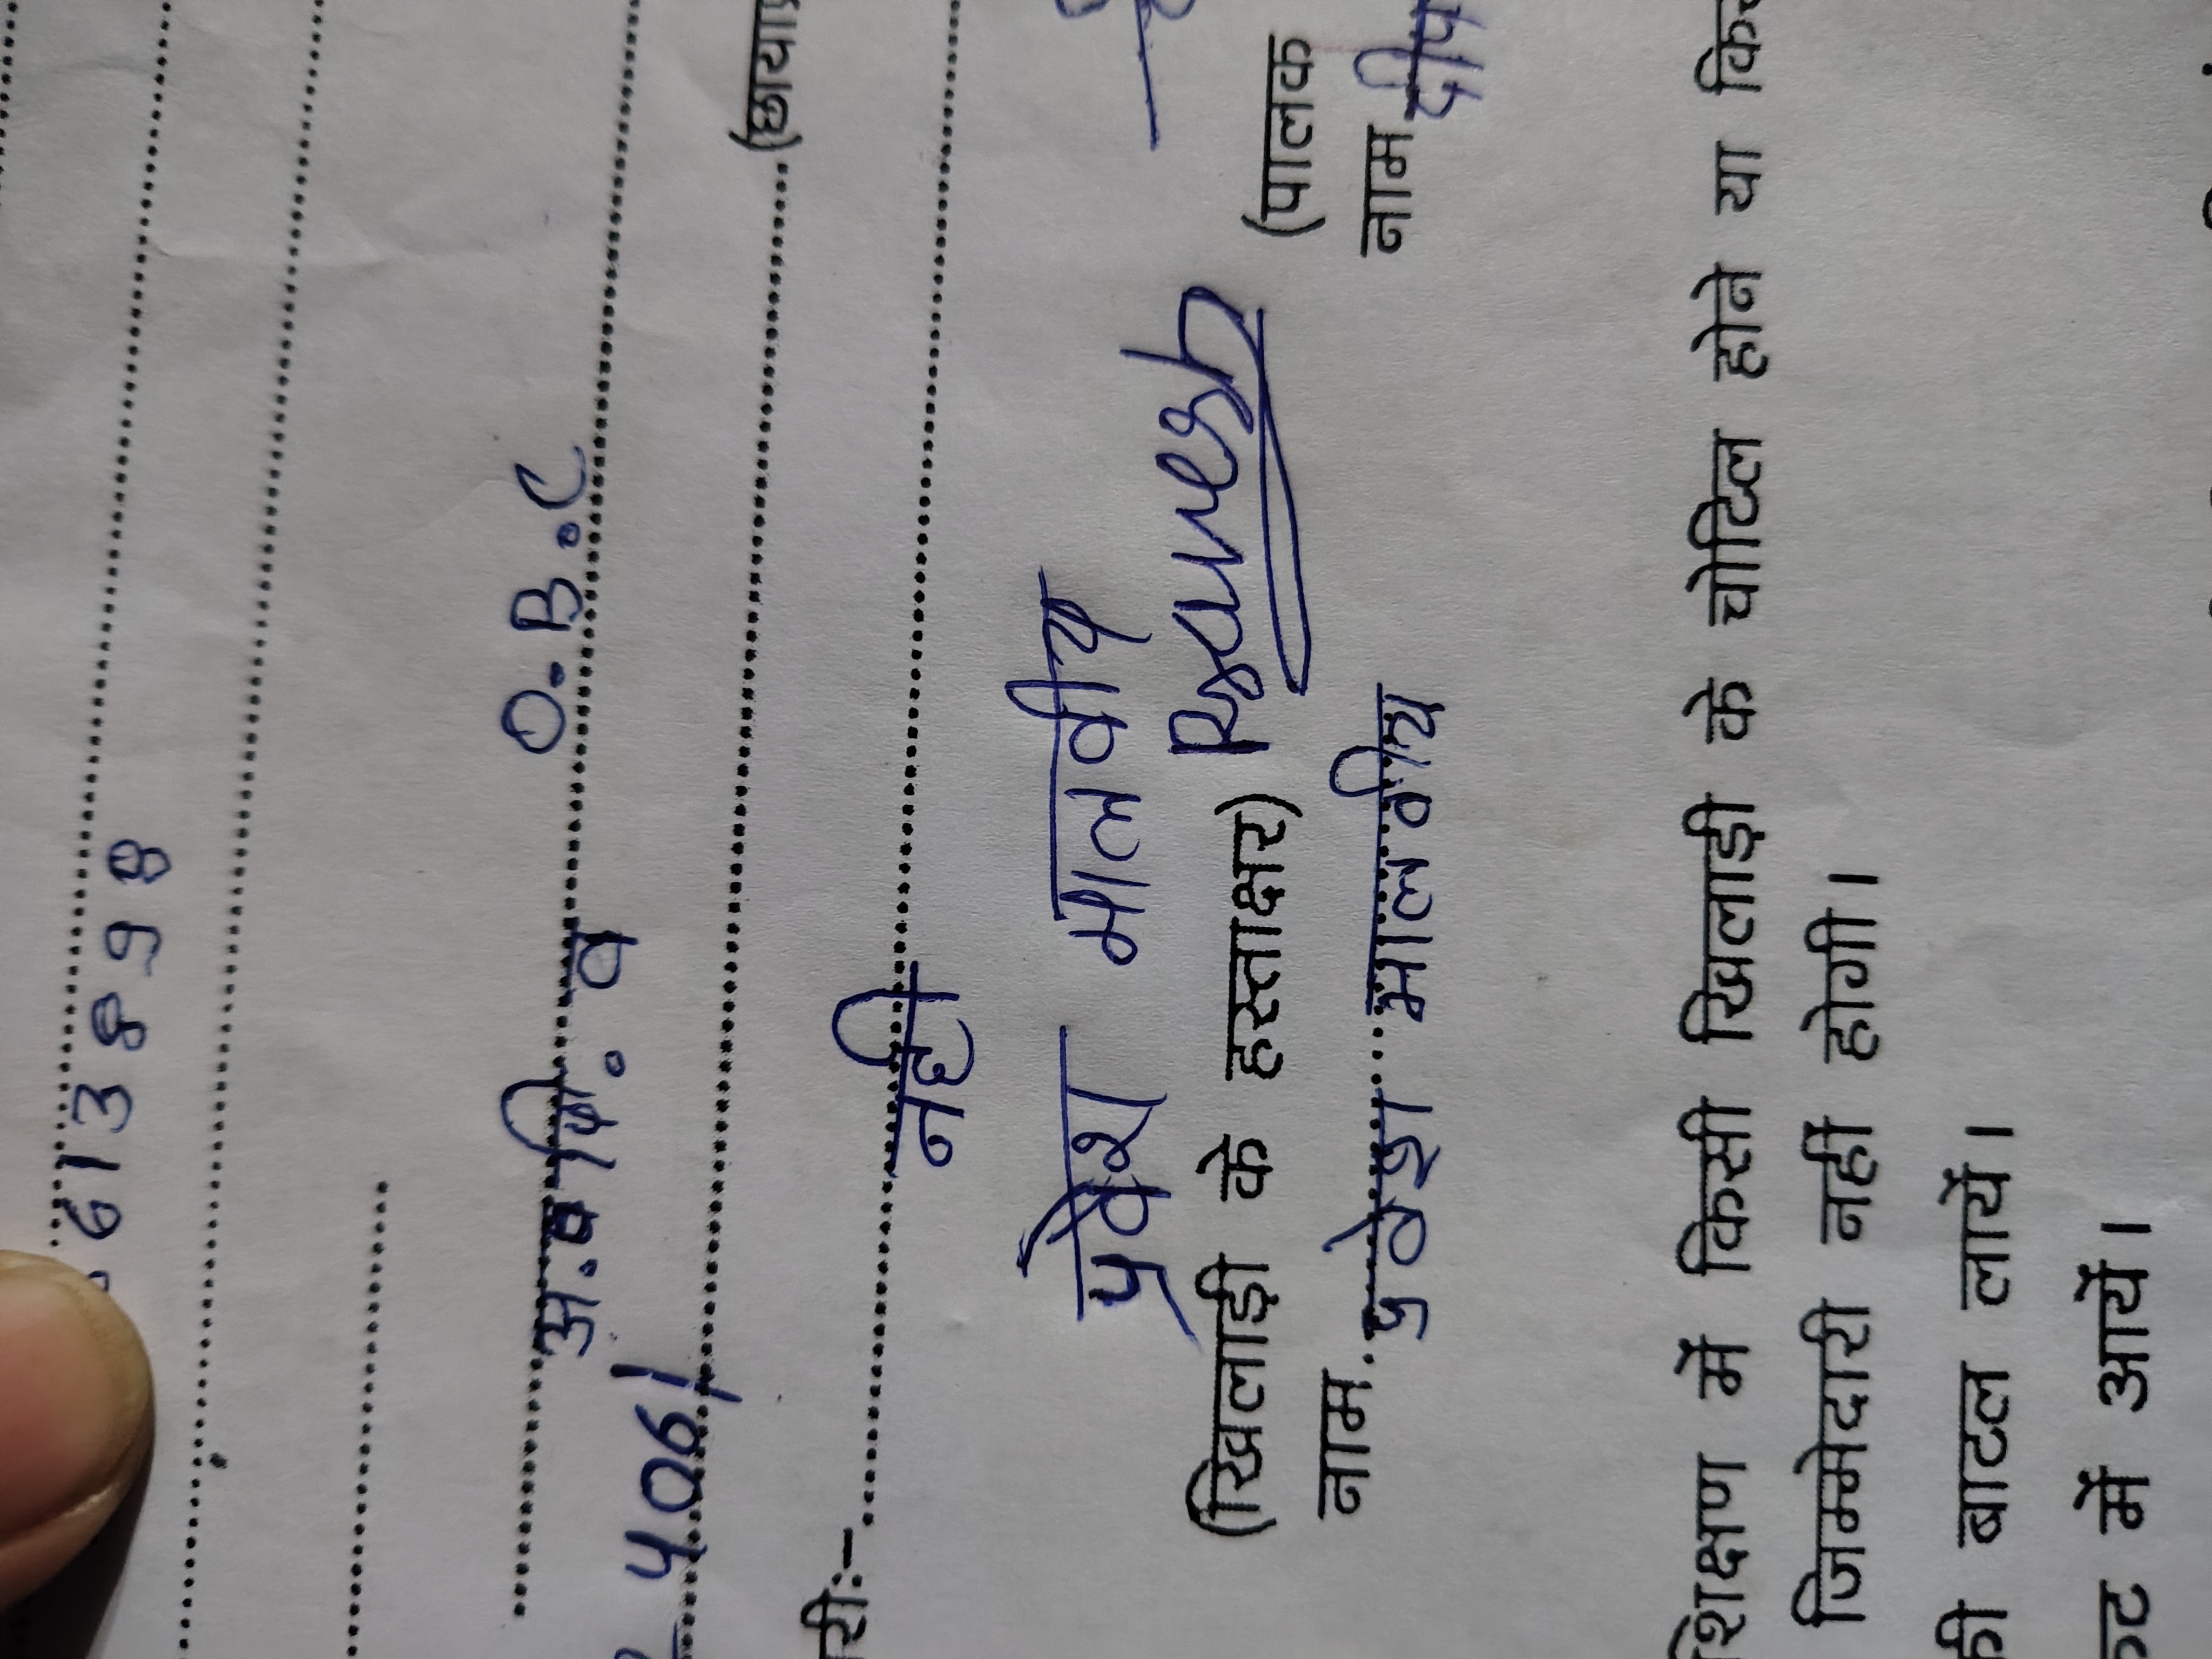 613898
अ.पि.व O.B.C
4061 (छायाप्र
री:-
नही
प्रवेश मालवीय
(खिलाड़ी के हस्ताक्षर) Pravesh (पालक
नाम. प्रवेश मालवीय नाम
में किसी खिलाड़ी के चोटिल होने या
जिम्मेदारी नहीं होगी।
की बाटल लायें।
में आयें।